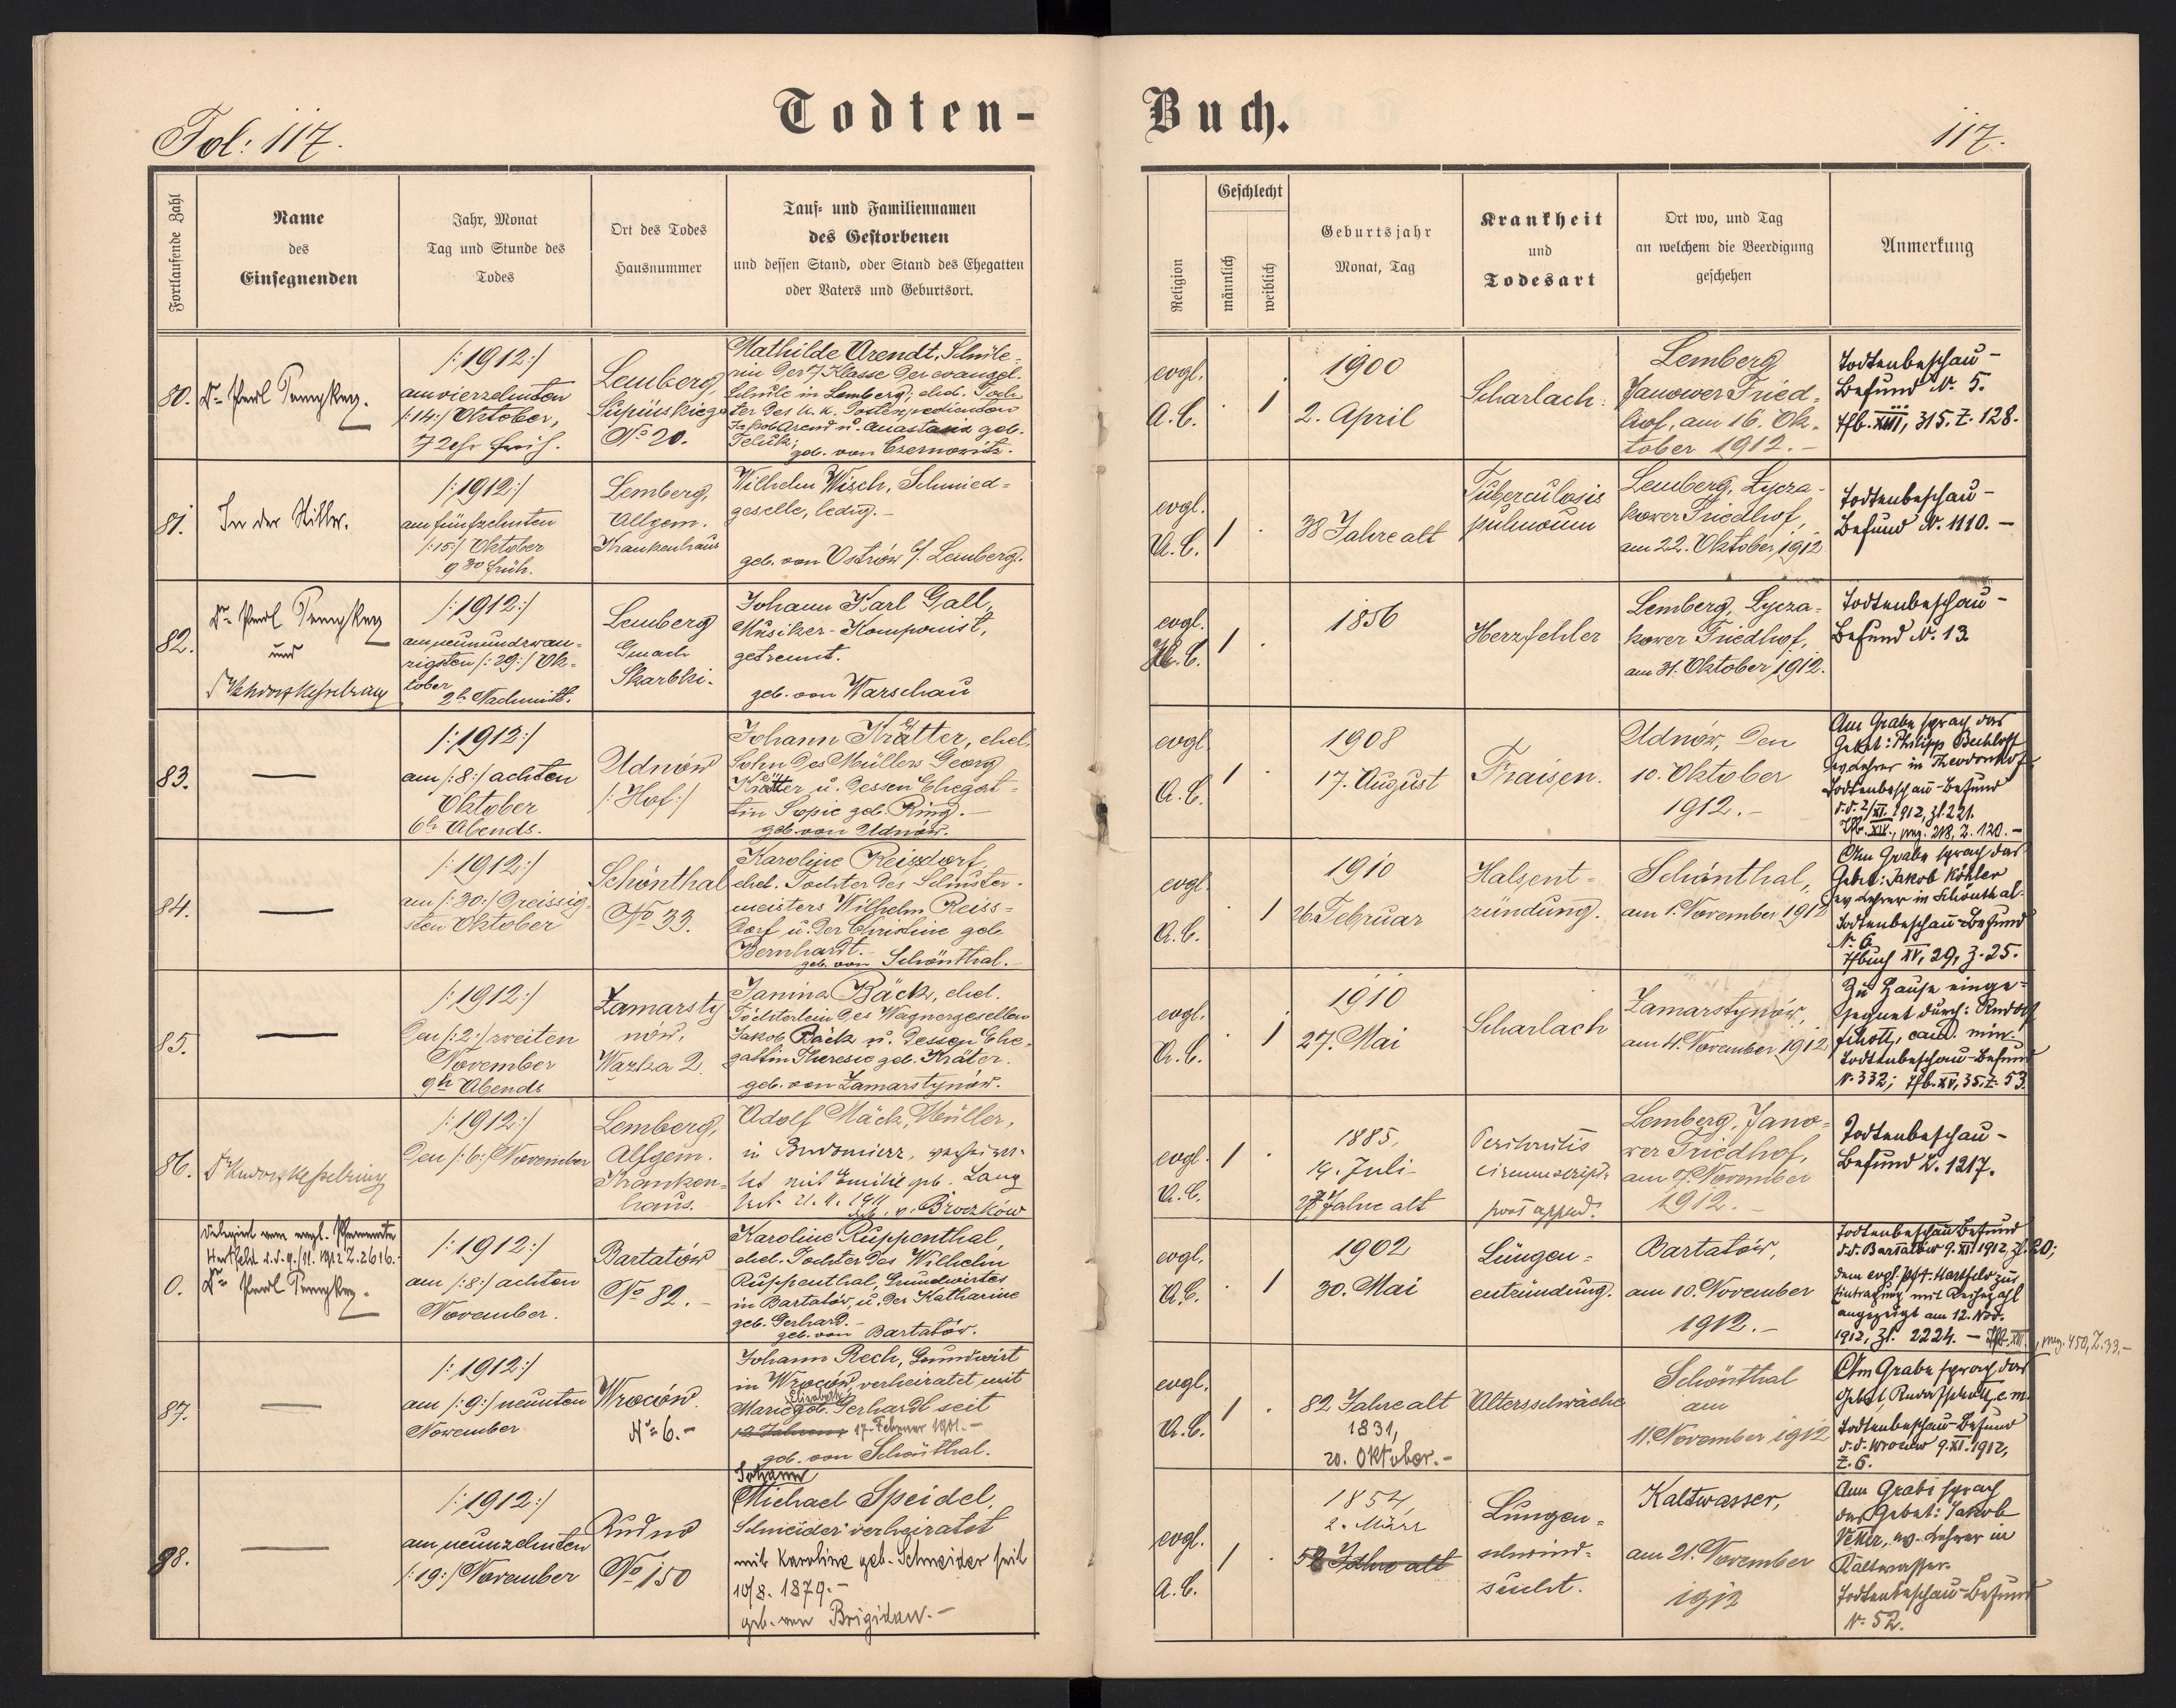 Todten-
Buch.
Fol: 117.
117.
Fortlaufende Zahl
Name
des
Einsegnenden
Jahr, Monat
Tag und Stunde des
Todes
Ort des Todes
Hausnummer
Tauf- und Familiennamen
des Gestorbenen
und dessen Stand, oder Stand des Ehegatten
oder Vaters und Geburtsort.
Religion
Geschlecht
männlich
weiblich
Geburtsjahr
Monat, Tag
Krankheit
und
Todesart
Ort wo, und Tag
an welchem die Beerdigung
geschehen
Anmerkung
80.
/:1912:/
am vierzehnten
/:14:/ Oktober,
7 Uhr früh.
Lemberg
No 20.
Mathilde Arendt, Schüle-
rin der 7 Klasse der evangel.
Schule in Lemberg, ehel. Toch
ter des k. k.
Jakob Arend u. Anastasia geb.
geb. von Czernowitz.
evgl.
A.C.
1
1900
2. April
Scharlach.
Lemberg
Janower Fried-
hof, am 16. Ok-
tober 1912.-
Todtenbeschau-
Befund N. 5.
Tfb. XIII, 315. Z. 128.
81.
In der Stille.
/:1912:/
am fünfzehnten
/:15:/ Oktober
9 30 früh.
Lemberg,
Allgem.
Krankenhaus
Wilhelm Wisch, Schmied-
geselle, ledig.-
geb. von Ostrów b/. Lemberg.
evgl.
A.C.
1
38 Jahre alt
Tuberculosis
pulmonum
Lemberg, Lycza-
kower Friedhof,
am 22. Oktober 1912
Todtenbeschau-
Befund N. 1110.-
82.
und
/:1912:/
am neunundzwan-
zigsten /:29:/ Ok-
tober
2h Nachmitt.
Lemberg
Gmach
Skarbki.
Johann Karl Gall,
Musiker-Komponist,
getrennt.
geb. von Warschau
evgl.
H.C.
1
1856
Herzfehler
Lemberg, Lycza-
kower Friedhof,
am 31. Oktober 1912.
Todtenbeschau-
Befund N. 13
83.
/:1912:/
am /:8:/ achten
Oktober
6h Abends.
Udnów
/:Hof:/
Johann Krätter, ehel.
Sohn des Müllers Georg
u. dessen Ehegat-
tin Sopie geb. Ring.-
geb. von Udnów.
evgl
A.C.
1
1908
17. August
Fraisen.
Udnów, den
10. Oktober
1912.-
Am Grabe sprach das
Gebet: Philipp Bechloff
ev. Lehrer in Theodorshof
Todtenbeschau-Befund
d.d. 2/XI. 1912, Zl. 221.
Tfb. XIV., pag. 218, Z. 120.-
84.
/:1912:/
am /:30:/ Dreissig-
sten Oktober
Schönthal
No 33.
Karoline Reisdorf,
ehel. Tochter des Schuster-
meisters Wilhelm Reiss-
dorf u. der Christine geb.
Bernhardt.-
geb. von Schönthal.-
evgl.
A.C.
1
1910
26. Februar
Halsent-
zündung.
Schönthal,
am 1. November 1912
Am Grabe sprach das
Gebet: Jakob Köhler
ev. Lehrer in Schönthal.
Todtenbeschau-Befund
N. 6.
Tfbuch XV, 29, Z. 25.
85.
/:1912:/
Den /:2:/ zweiten
November
9h Abends
Zamarsty
nów.
Wazka 2.
Janina Bäck, ehel.
Töchterlein des Wagnergesellen
Jakob Bäck u. dessen Ehe-
gattin Theresie geb. Kräter.
geb. von Zamarstynów.
evgl.
A.C.
1
1910
27. Mai
Scharlach
Zamarstynów,
am 4. November 1912
Zu Hause einge-
segnet durch: Rudolf
Schott, cand. min.
Todtenbeschau-Befund
N. 332; Tfb. XV, 35. Z. 53
86.
/:1912:/
Den /:6:/ November
Lemberg,
Allgem.
Kranken-
haus.
Adolf Mäck, Müller,
in
tet mit Emilie geb. Lang
seit 21.4.1911.
geb. v. Broczków
evgl.
A.C.
1
1885,
4. Juli
27 Jahre alt
Peritonitis
circumscript.
post append.
Lemberg, Jano-
wer Friedhof,
am 7. November
1912.-
Todtenbeschau-
Befund Z. 1217.
0.
Delegirt vom evgl. Pfarramte
Hartfeld d.d. 9./11. 1912 Z. 2616.
/:1912:/
am /:8:/ achten
November.
Bartatów
No 82.-
Karoline Ruppenthal,
ehel. Tochter des Wilhelm
Ruppenthal, Grundwirtes
in Bartatów, u. der Katharine
geb. Gerhard.-
geb. von Bartatów.
evgl.
A.C.
1
1902
30. Mai
Lungen-
entzündung.
Bartatów,
am 10. November
1912.-
Todtenbeschau Befund
d.d. Bartatów 9.XI.1912, Zl. 20;
dem evgl. Pfa. Hartfeld zur
Eintragung mit Reihezahl
angezeigt am 12. Nov.
1912, Zl. 2224.- Tfb. XIII, pag. 450, Z. 33.-
87.
/:1912:/
am /:9:/ neunten
November
Wroców.
No 6.-
Johann Rech, Grundwirt
in Wrocow, verheiratet mit
Elisabeth
Marie geb. Gerhardt seit
12 Jahren, 17. Februar 1901.-
geb. von Schönthal.
evgl.
A.C.
1
82 Jahre alt
1831,
20. Oktober.-
Altersschwäche
Schönthal
am
11. November 1912
Am Grabe sprach das
Gebet, Rudolf Schott, c.m.
Todtenbeschau-Befund
d.d. Wrocow 9.XI.1912,
Z. 6.
88.
/:1912:/
am neunzehnten
/:19:/ November
Rudno
No 150
Johann
Michael Speidel,
Schneider verheiratet
mit Karoline geb. Schneider seit
10/8. 1879.-
geb. von Brigidau.-
evgl.
A.C.
1
1854,
2. März
58 Jahre alt
Lungen-
schwind-
sucht.
Kaltwasser,
am 21. November
1912
Am Grabe sprach
das Gebet: Jakob
ev. Lehrer in
Kaltwasser.
Todtenbeschau-Befund
N. 52.